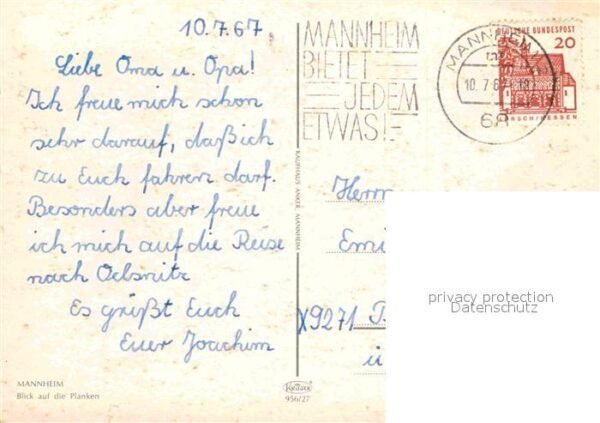 10.7.67
Liebe Oma u. Opa!
Ich freue mich schon
sehr darauf, daß ich
zu Euch fahren darf.
Besonders aber freue
ich mich auf die Reise
nach Oelsnitz
Es grüßt Euch
Euer Joachim
MANNHEIM
Blick auf die Planken
KAUFHAUS ANKER MANNHEIM
Krüger
956/27
MANNHEIM
BIETET
JEDEM
ETWAS!
MANNHEIM
10.7.67
68
DEUTSCHE BUNDESPOST
20
LORSCH/HESSEN
Herrn
Emi
X9271
privacy protection
Datenschutz